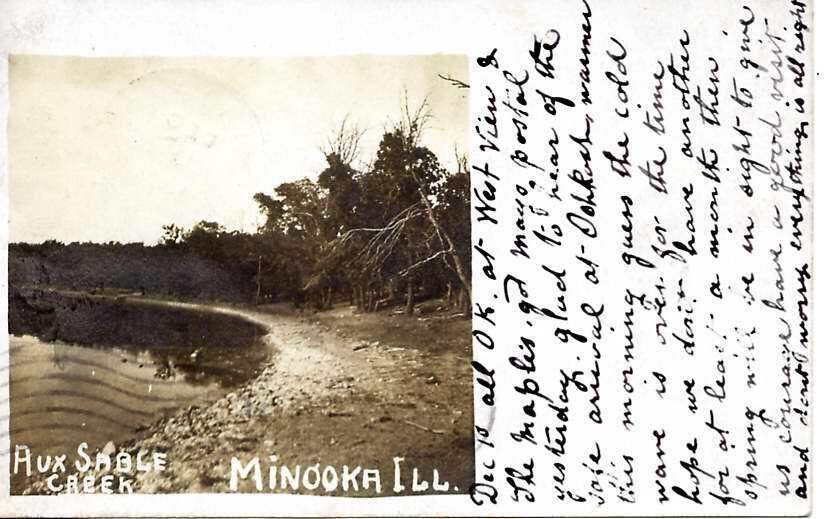 AUX SABLE
CREEK
MINOOKA ILL.
Dec 10 all O.K. at West View &
The Maples. got mays postal
yesterday. glad to hear of the
safe arrival at Oshkosh, warmer
this morning guess the cold
wave is over for the time
hope we don't have another
for at least a month then
spring will be in sight to give
us courage have a good visit.
and dont worry everything is all right